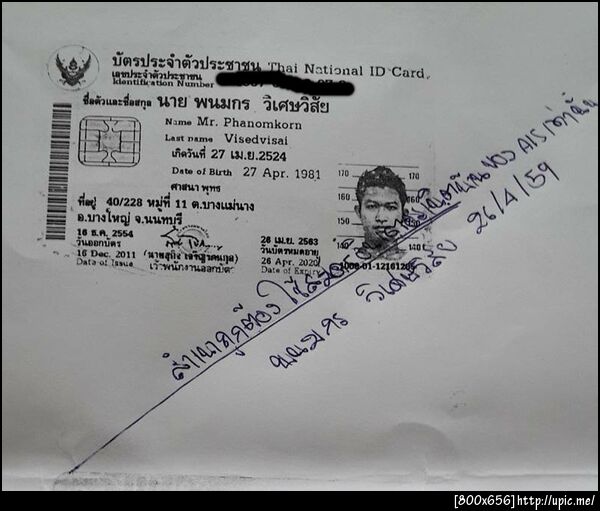 บัตรประจำตัวประชาชน Thai National ID Card
เลขประจำตัวประชาชน
Identification Number
ชื่อตัวและชื่อสกุล นาย พนมกร วิเศษวิสัย
Name Mr. Phanomkorn
Last name Visedvisai
เกิดวันที่ 27 เม.ย.2524
Date of Birth 27 Apr. 1981
ศาสนา พุทธ
ที่อยู่ 40/228 หมู่ที่ 11 ต.บางแม่นาง
อ.บางใหญ่ จ.นนทบุรี
16 ธ.ค. 2554
วันออกบัตร
16 Dec. 2011
Date of Issue
เจ้าพนักงานออกบัตร
26 เม.ย. 2563
วันบัตรหมดอายุ
26 Apr. 2020
Date of Expiry
170 170
160 160
150 150
140 140
สำเนาถูกต้อง ใช้สมัคร ของ AIS เท่านั้น
พนมกร วิเศษวิสัย 26/4/59
[800x656] http://upic.me/